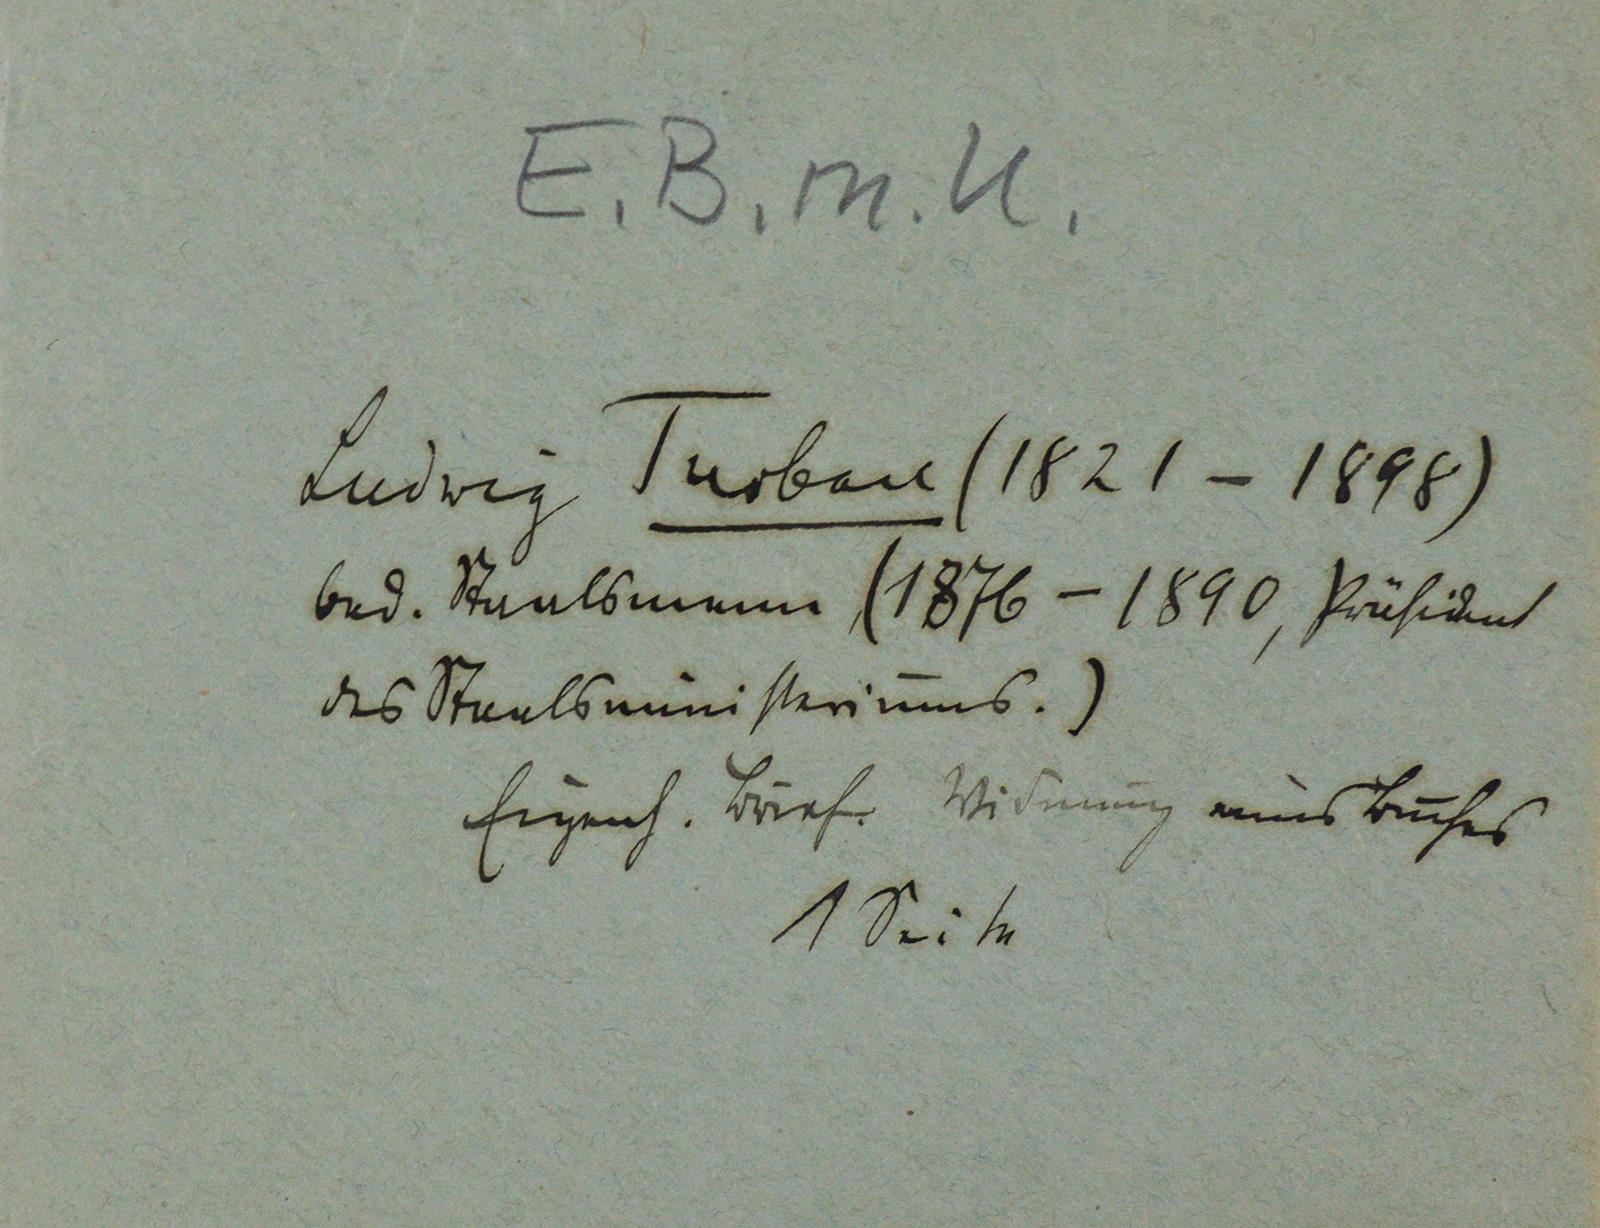 E. B. m. U.
Ludwig Turban (1821 – 1898)
bad. Staatsmann (1876 – 1890, Präsident
des Staatsministeriums.)
Eigenh. Brief. Widmung eines Buches
1 Seite